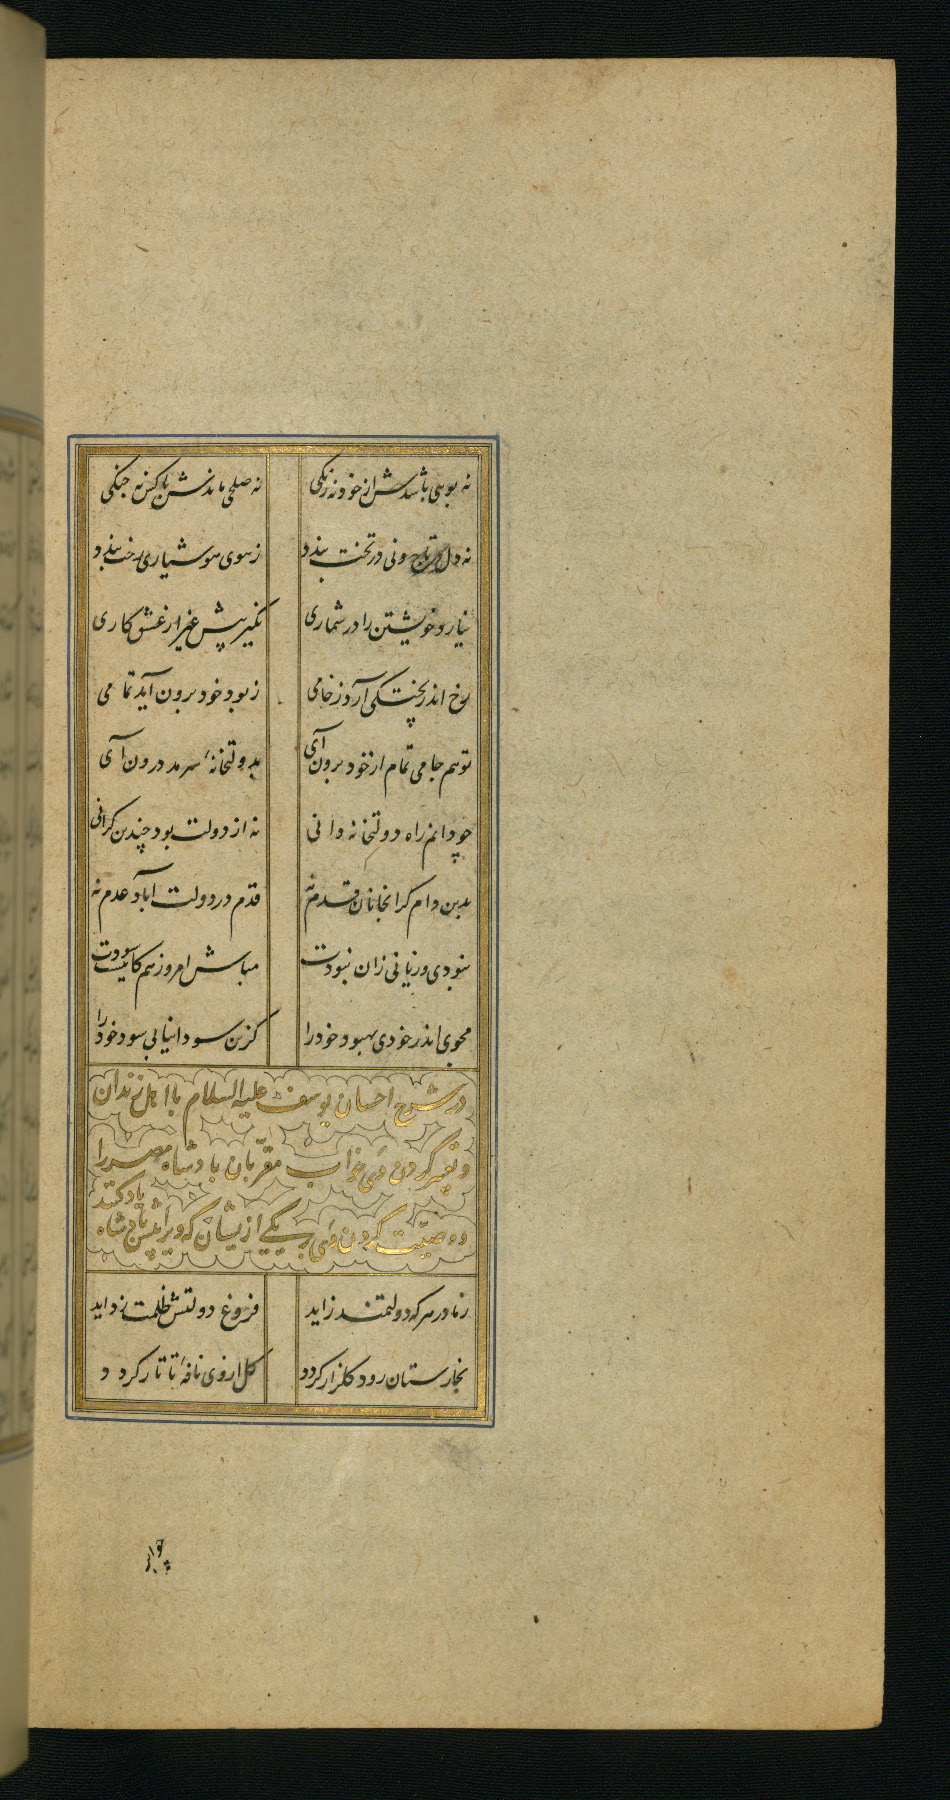 نه بویی باشدش از خود نه رنگی نه صلحی ماندش با کس نه جنگی
نه دل در تاج و نی در تخت بندد ز هوی هوشیاری رخت بندد
نیارد خویشتن را در شماری نگیرد پیش غیر از عشق کاری
رخ اندر پختگی آرد ز خامی ز بود خود برون آید تمامی
تو هم جامی تمام از خود برون آی بدولتخانهٔ سرمد درون آی
چو دانم راه دولتخانه دانی نه از دولت بود چندین گرانی
بدین دام گرانجانان قدم نه قدم در دولت آباد عدم نه
نبودی و زیانی زان نبودت مباش امروز هم کاینست سودت
مجوی اندر خودی بهبود خود را کزین سودا نیابی سود خود را
در شرح احسان یوسف علیه السلام با اهل زندان
و تعبیر کردن وی خواب مقربان پادشاه مصر را
و وصیت کردن وی یکی از یشان که ویرا پیش پادشاه یاد کند
ز مادر هر که دولتمند زاید فروغ دولتش ظلمت زداید
بخارستان رود گلزار گردد گل از وی نافهٔ تاتار گردد
چو ابر